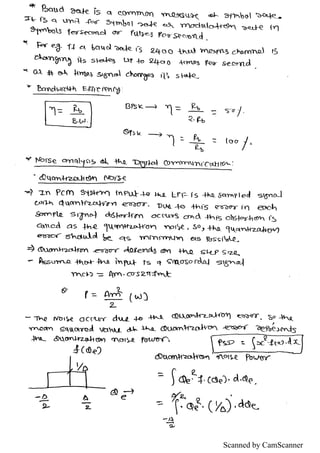 * Baud rate is a common measure of symbol rate.
It is a unit for symbol rate or modulation rate in
symbols persecond or Pulses Per Second.
* For eg. If a baud rate is 2400 that means channel is
changing its states up to 2400 times Per second.
- as # of times signal changes it's state.
* Bandwidth Efficiency:
η = Rb / B.W.
BPSK → η = Rb / 2.Rb = 50%.
QPSK → η = Rb / Rb = 100%.
* Noise analysis of the Digital Communication:
* Quantization Noise
→ In PCM System input to the LPF is the sampled signal
with quantization error. Due to this error in each
Sample signal distortion occurs and this distortion is
called as the quantization noise. So, the quantization
error should be as minimum as Possible.
⇒ Quantization error depends on the step size.
- Assume that the input is a sinosoidal signal
m(t) = Am.cos2πfmt
P = Am² / 2 (W)
- The Noise occur due to the Quantization error. So the
mean squared value of the Quantization error represents
the Quantization noise power.
PSD = ∫x² f(x).dx
f(Qe)
Quantization noise Power
1/Δ
= ∫ Qe². f.(Qe).dQe.
-Δ/2 Δ/2 Qe →
= ∫ Qe². (1/Δ).dQe
Δ/2
-Δ/2
Scanned by CamScanner